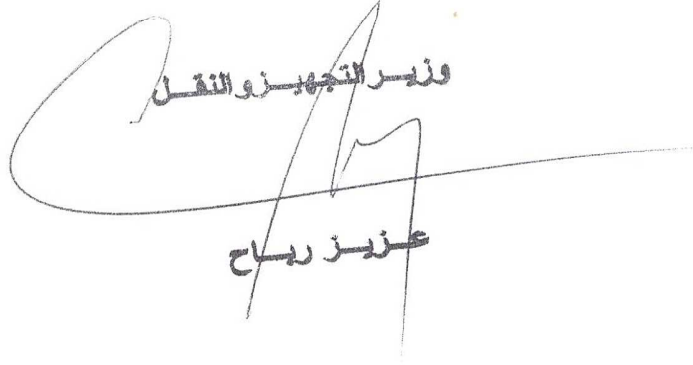 وزير التجهيز والنقل
عزيز رباح